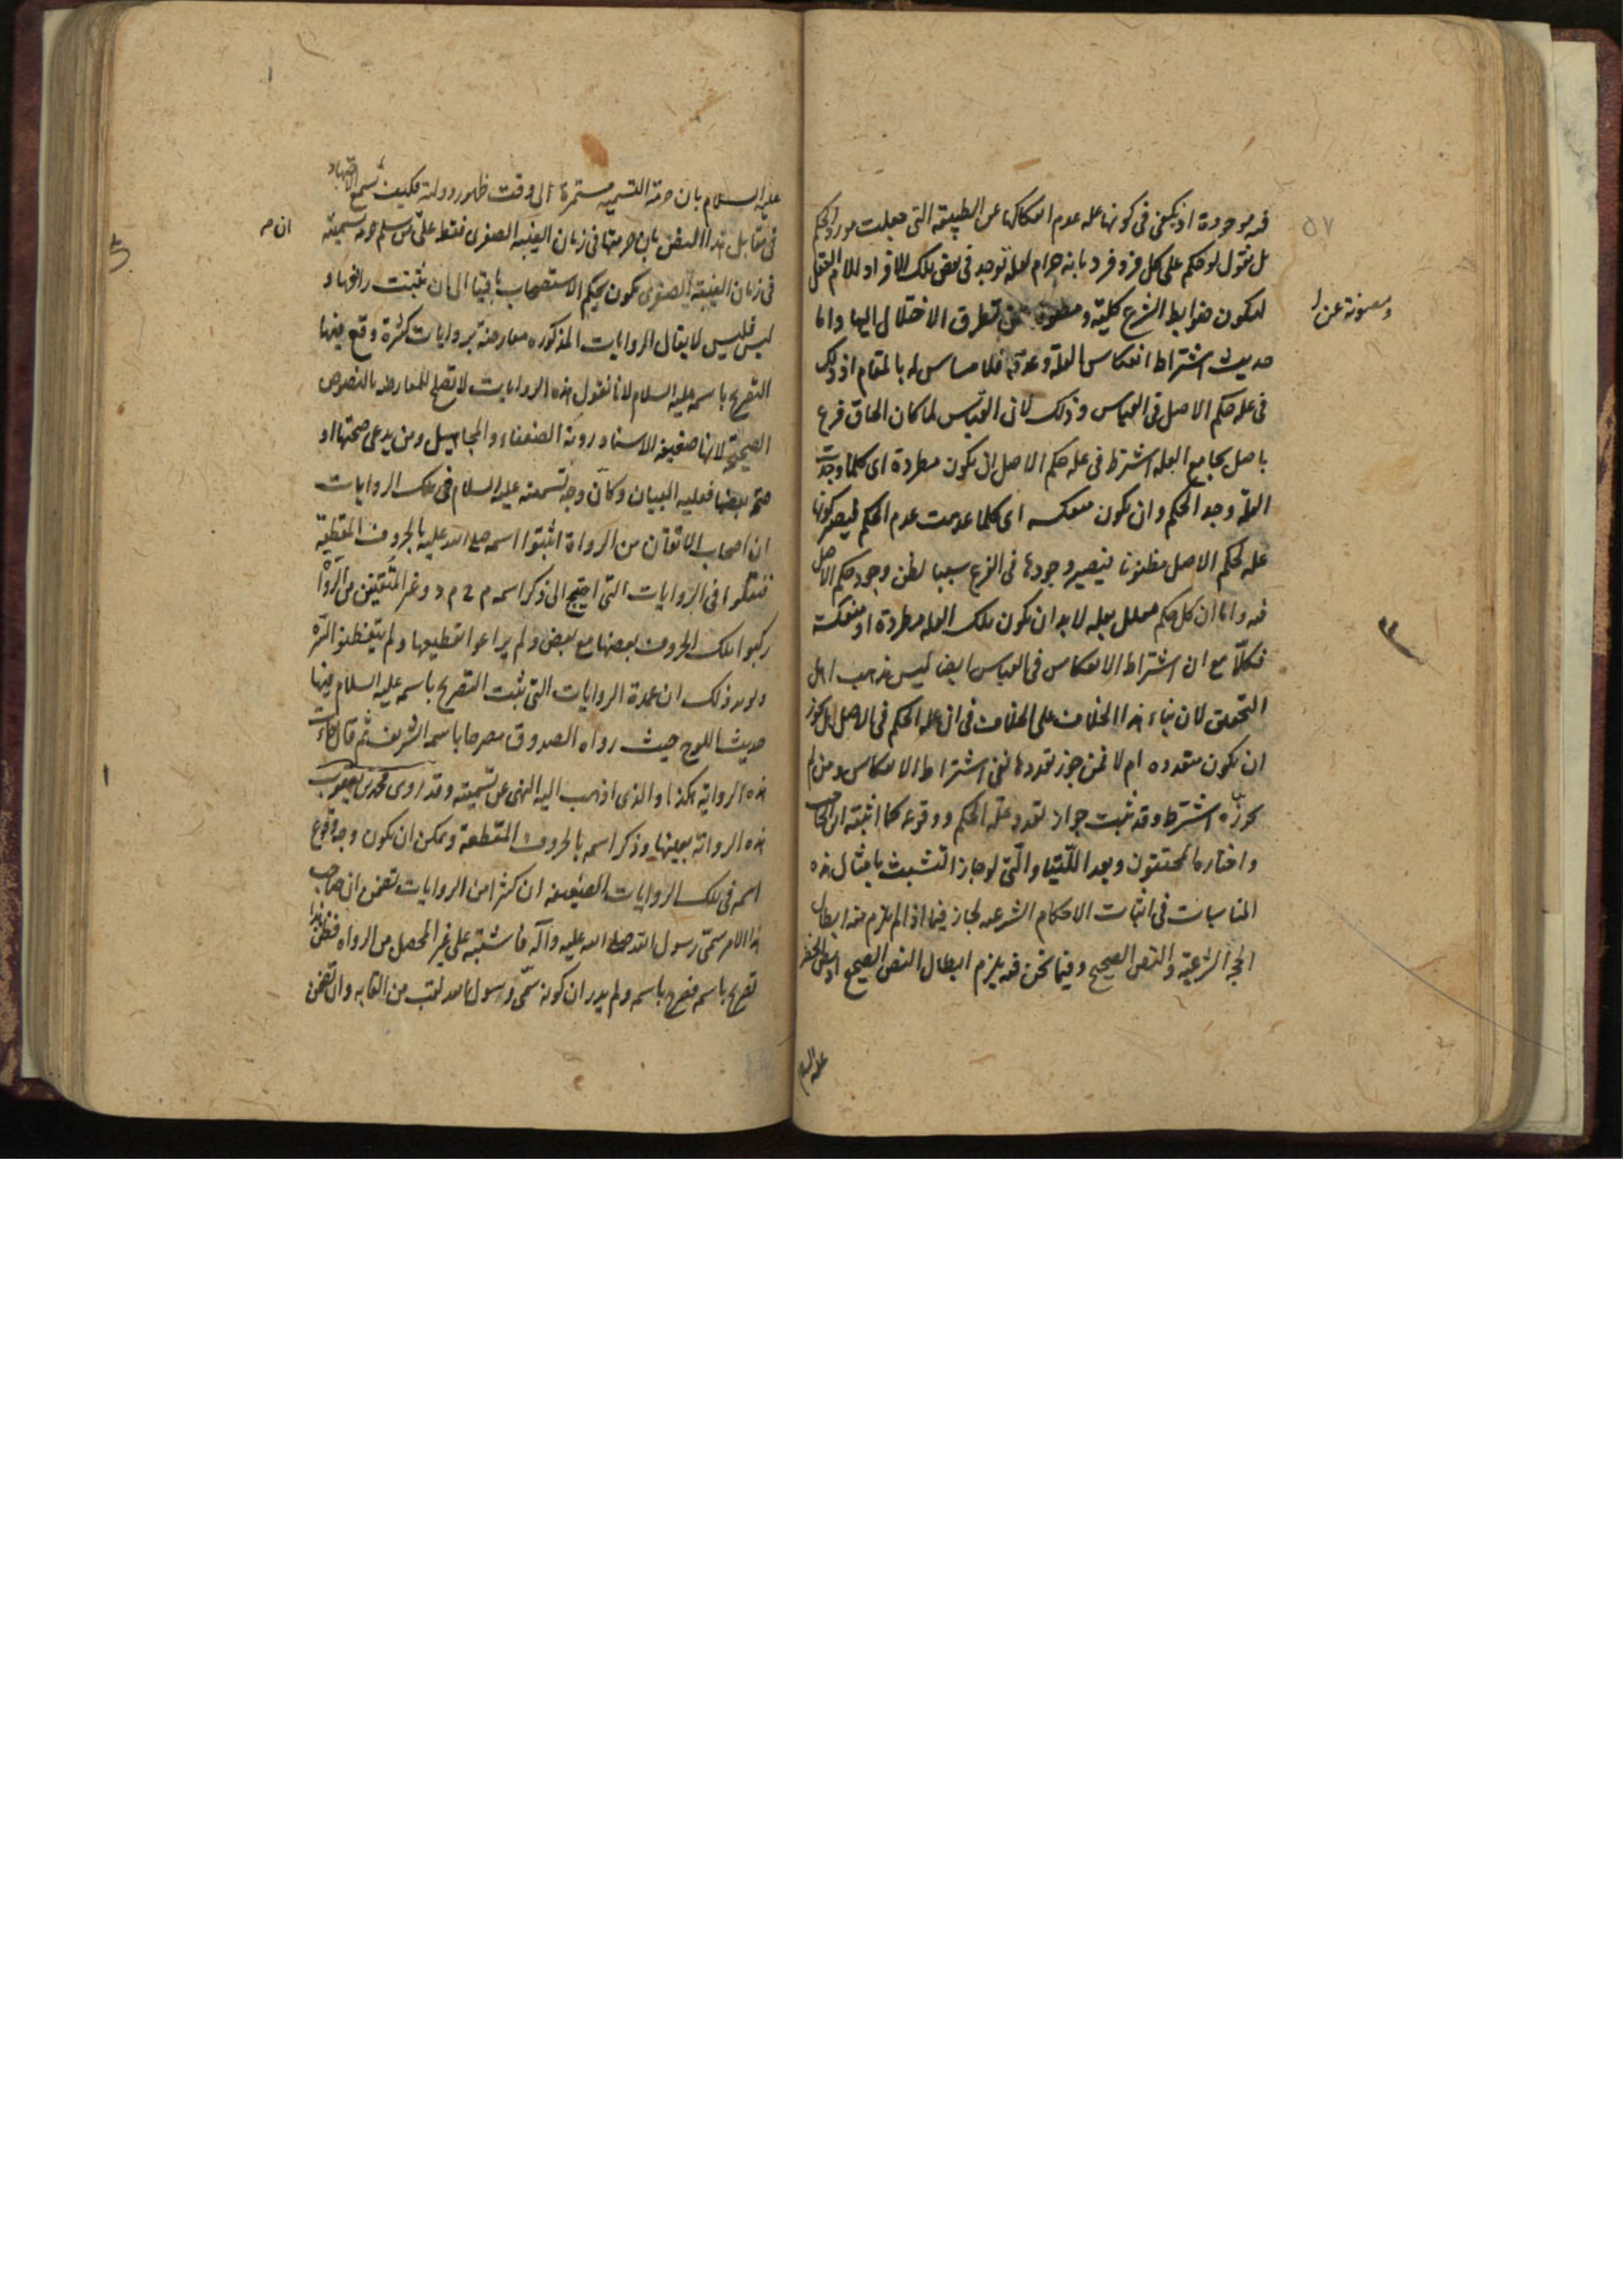 فيه موجودة اذ يكفى فى كونها علة عدم انفكاكها عن الطبيعة التى جعلت مورد الحكم
بل نقول لو حكم على كل فرد فرد بانه حرام لعلة توجد فى بعض تلك الافراد للام
لتكون ضوابط الشرع كلية و عن تطرق الاختلال اليها واما
ومصونة عن
حديث اشتراط انعكاس العلة وعدمه فلا مساس له بالمقام اذ ذلك
فى علة حكم الاصل فى القياس وذلك لان القياس لما كان الحاق فرع
باصل بجامع العلة اشترط فى علة حكم الاصل ان يكون مطردة اى كلما وجدت
العلة وجد الحكم وان يكون منعكسه اى كلما عدمت عدم الحكم ليصير كونها
علة لحكم الاصل مظنونا فيصير وجودها فى الفرع سببا لظن وجود حكم الاصل
فيه واما ان كل حكم معلل بعلة لابد ان تكون تلك العلة مطردة او منعكسة
فكلا مع ان اشتراط الانعكاس فى القياس ايضا ليس مذهب اهل
التحقيق لان بناء هذا الخلاف على الخلاف فى ان علة الحكم فى الاصل هل يجوز
ان تكون متعدده ام لا فمن جوز تعددها نفى اشتراط الانعكاس ومن لم
يجوزه اشترط وقد ثبت جواز تعدد علة الحكم ووقوعه كما اثبته ابن الحاجب
واختاره المحققون وبعد اللتيا والتى لو جاز التشبث بامثال هذه
المناسبات فى اثبات الاحكام الشرعية لجاز فيما اذا لم يلزم منه ابطال
الحجة الشرعية والنص الصحيح وفيما نحن فيه يلزم ابطال النص الصحيح اذ
عليه السلام
٥٧
عليه السلام بان حرمة التسمية مستمرة الى وقت ظهور دولته فكيف تسمع الاجتهاد
فى مقابل هذا النص بان حرمتها فى زمان الغيبة الصغرى فقط على من سلم حرمة تسميته
فى زمان الغيبة الصغرى يكون بحكم الاستصحاب باقيا الى ان يثبت رافعها و
ليس فليس لا يقال الروايات المذكوره معارضة بروايات كثيرة وقع فيها
التصريح باسمه عليه السلام لانا نقول هذه الروايات لا تصلح للمعارضة بالنصوص
الصحيحة لانها ضعيفة الاسناد روته الضعفاء والمجاهيل ومن يدعى صحتها او
صحة بعضها فعليه البيان وكأن وجه تسميته عليه السلام فى تلك الروايات
ان اصحاب الاتقان من الرواة اثبتوا اسمه صلى الله عليه بالحروف المقطعة
فى الروايات التى احتيج الى ذكر اسمه م ح م د وغير المتقنين من الرواة
ركبوا تلك الحروف بعضها مع بعض ولم يراعوا تقطيعها ولم يتفطنوا السره
ويؤيد ذلك ان عمدة الروايات التى ثبت التصريح باسمه عليه السلام فيها
حديث اللوح حيث رواه الصدوق مصرحا باسمه الشريف ثم قال جاءت
هذه الرواية هكذا والذى اذهب اليه النهى عن تسميته وقد روى محمد بن يعقوب
هذه الرواية بعينها وذكر اسمه بالحروف المقطعة ويمكن ان يكون وجه وقوع
اسمه فى تلك الروايات الضعيفة ان كثرا من الروايات تضمن ان صاحب
هذا الامر سمى رسول الله صلى الله عليه وآله فاشتبه على غير المحصل من الرواه فظن هذا
تصريح باسمه فصرح باسمه ولم يدر ان كونه سمى رسول الله لقب من القابه وان تضمن